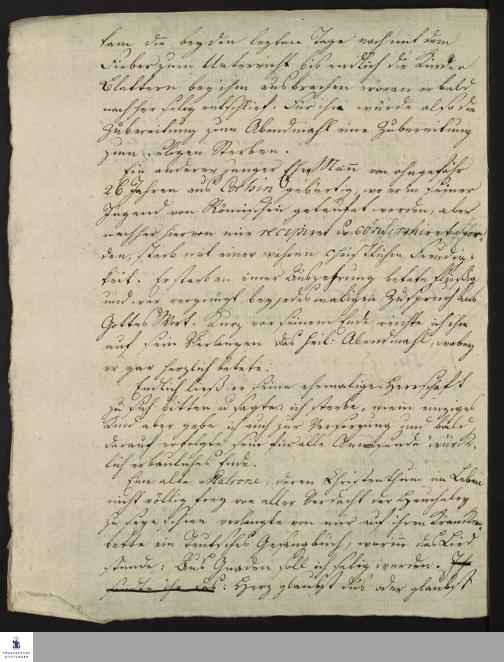 kam die beyden lezten Tage noch mit dem
Fieber zum Unterricht bis endlich die Kinder
Blattern bey ihm ausbrachen woran er bald
nachher selig entschlief. Für ihn wurde also die
Zubereitung zum Abendmahl eine Zubereitung
zum seligen Sterben.
Ein anderer junger Ehe Mann von ohngefähr
26 Jahren aus Cochin gebürtig, wo er in seiner
Jugend von Römischen getauft worden, aber
nachher hier von mir recipirt u confirmiret wor-
den, starb mit einer wahren christlichen Freudig-
keit. Er starb an einer Auszehrung betete fleißig
und war vergnügt bey jedesmaligen Zuspruch aus
Gottes Wort. Kurz vor seinem Ende reichte ich ihm
auf sein Verlangen das heil: Abendmahl, wobey
er gar herzlich betete.
Endlich ließ er seine ehemalige Herrschaft
zu sich bitten u sagte: ich sterbe, mein einziges
Kind aber gebe ich euch zur Versorgung und bald
darauf erfolgte sein für alle Anwesende würk-
lich erbauliches Ende.
Eine alte Matrone, deren Christenthum im Leben
nicht völlig frey von aller Verdacht der Heucheley
zu seyn schien verlangte von mir auf ihrem Kranken-
bette ein Teutsches Gesangbuch, worin das Lied
stünde: Aus Gnaden soll ich selig werden. Ich
: Herz glaubst dus oder glaubst
FRANCKESCHE
STIFTUNGEN